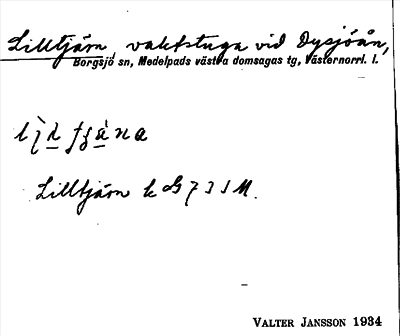 Lilltjärn, vaktstuga vid Dysjöån,
Borgsjö sn, Medelpads västra domsagas tg, Västernorrl. l.
Lilltjärn
VALTER JANSSON 1934